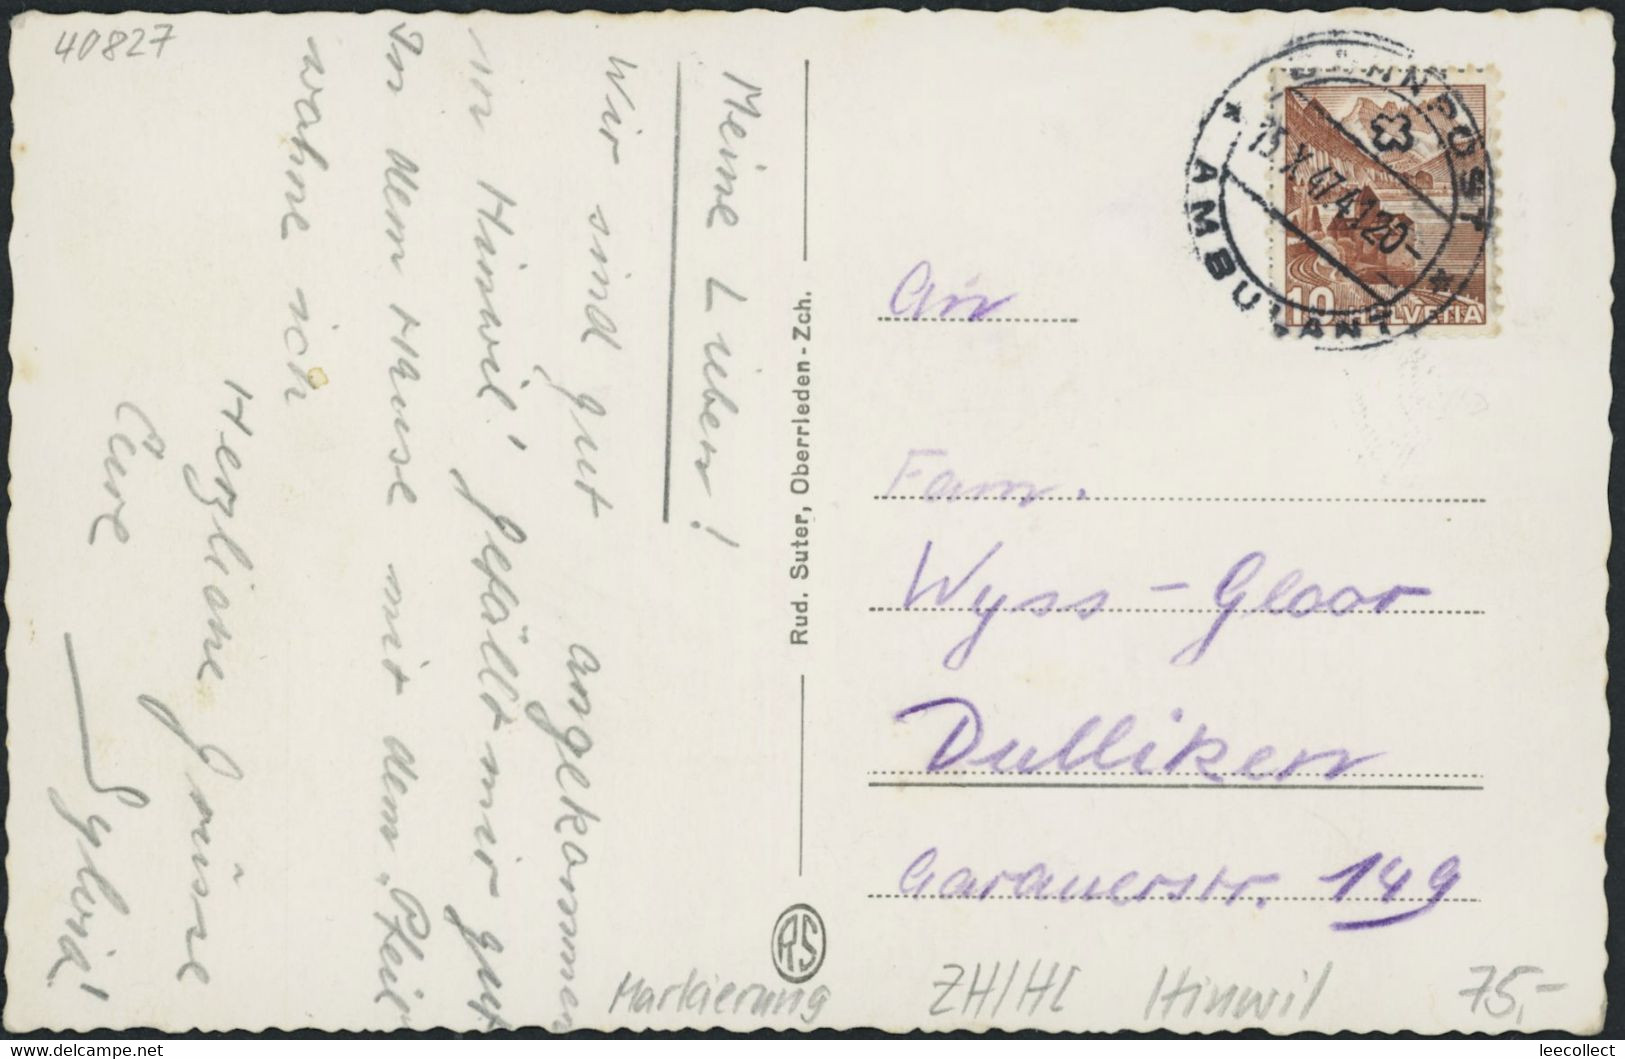 40827
Meine Lieben!
Wir sind gut angekommen
in Hinwil! Gefällt mir gut
In dem Hause mit dem „Pfeil"
wohne ich
Herzliche Grüsse
Eure
Sylvia!
Rud. Suter, Oberrieden - Zch.
RS
BAHNPOST
* AMBULANT *
15.X.47.4120-
10 HELVETIA
An
Fam.
Wyss - Gloor
Dulliken
Aarauerstr. 149
Markierung ZH/HL Hinwil 75,-
leecollect